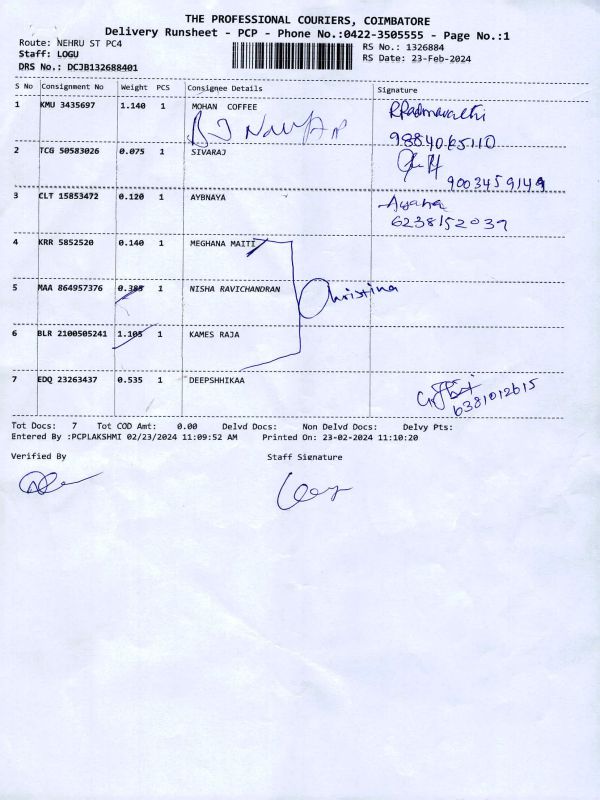 THE PROFESSIONAL COURIERS, COIMBATORE
Delivery Runsheet - PCP - Phone No.:0422-3505555 - Page No.:1
Route: NEHRU ST PC4
RS No.: 1326884
Staff: LOGU
RS Date: 23-Feb-2024
DRS No.: DCJB132688401
S No Consignment No Weight PCS Consignee Details Signature
1 KMU 3435697 1.140 1 MOHAN COFFEE RPadmavathi
2 TCG 50583026 0.075 1 SIVARAJ
9003459149
3 CLT 15853472 0.120 1 AYBNAYA
6238152039
4 KRR 5852520 0.140 1 MEGHANA MAITI
5 MAA 864957376 0.385 1 NISHA RAVICHANDRAN Christina
6 BLR 2100505241 1.105 1 KAMES RAJA
7 EDQ 23263437 0.535 1 DEEPSHHIKAA
6381012615
Tot Docs: 7 Tot COD Amt: 0.00 Delvd Docs: Non Delvd Docs: Delvy Pts:
Entered By :PCPLAKSHMI 02/23/2024 11:09:52 AM Printed On: 23-02-2024 11:10:20
Verified By Staff Signature